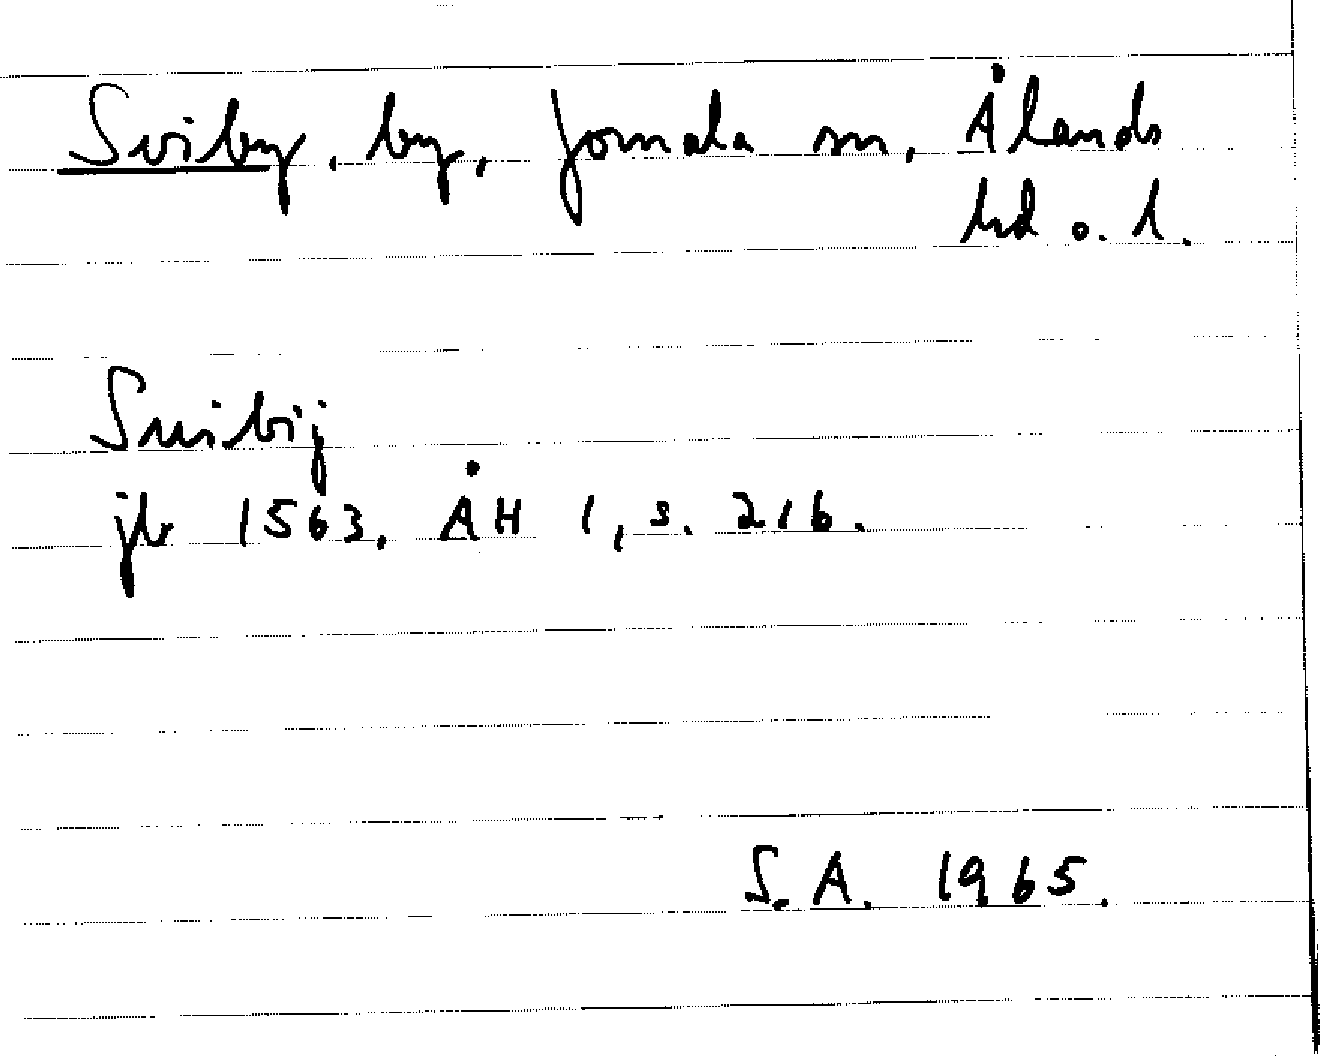 Sviby, by, Jomala sn, Ålands
hd o. l.
Suibij
jb 1563. ÅH 1, s. 216.
S.A. 1965.